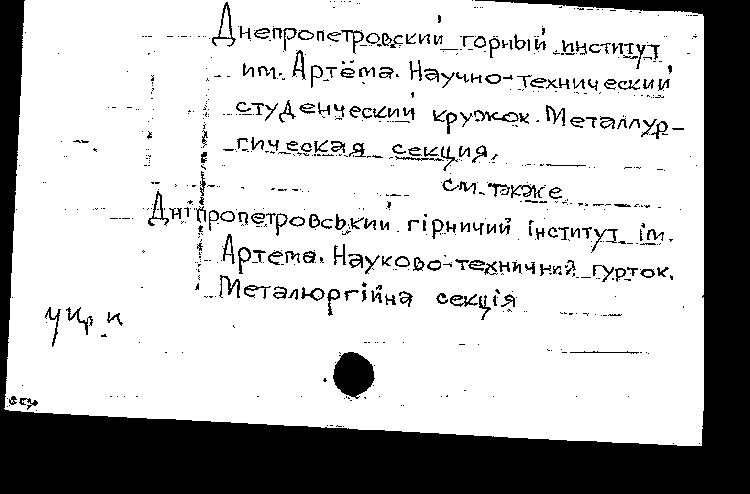 Днепропетровский горный институт
им. Артёма. Научно-технический
студенческий кружок. Металлур-
гическая секция,
см. также
Дніпропетровський гірничий інститут ім.
Артема. Науково-технічний гурток.
Металюргійна секція
укр. к